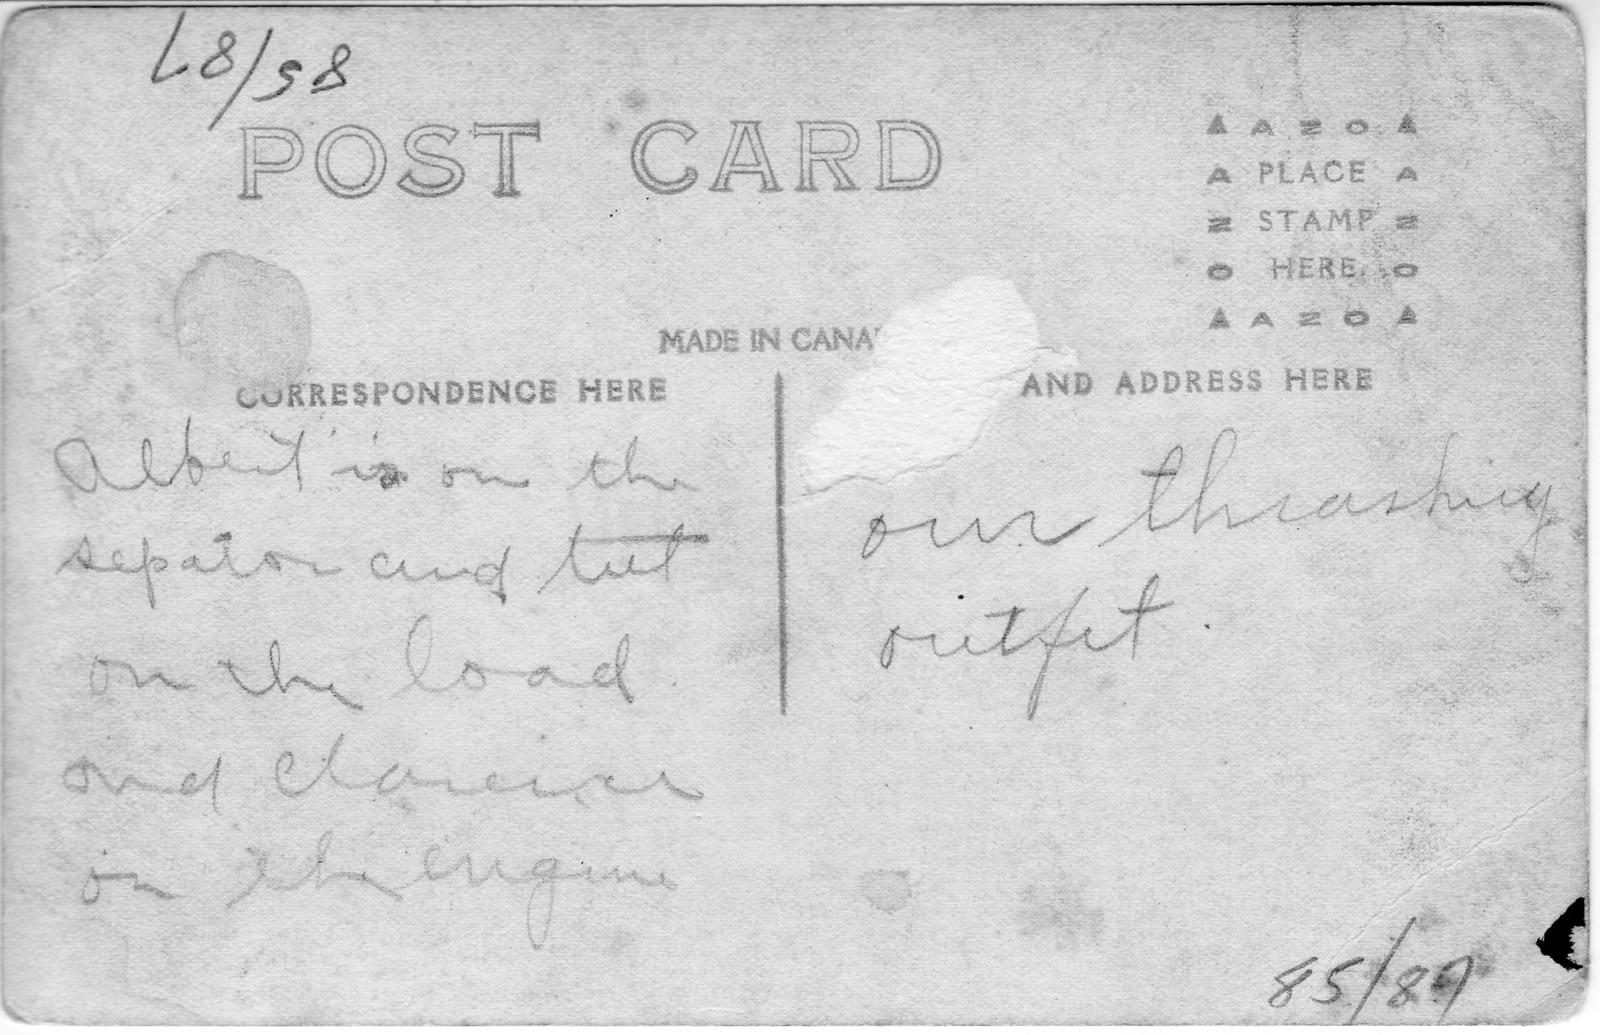 POST CARD
AZO
PLACE
STAMP
HERE
AZO
MADE IN CANA
CORRESPONDENCE HERE
AND ADDRESS HERE
Albert is on the
sepator and
on the load
and Clarence
on the engine
our thrashing
outfit.
85/89